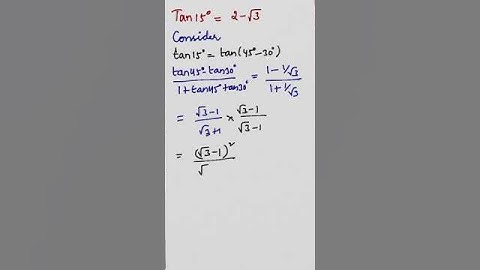 Tan 15° = 2 - √3
Consider
tan 15° = tan (45° - 30°)
tan 45° - tan 30° / 1 + tan 45° + tan 30° = 1 - 1/√3 / 1 + 1/√3
= √3 - 1 / √3 + 1 × √3 - 1 / √3 - 1
= (√3 - 1)² / √